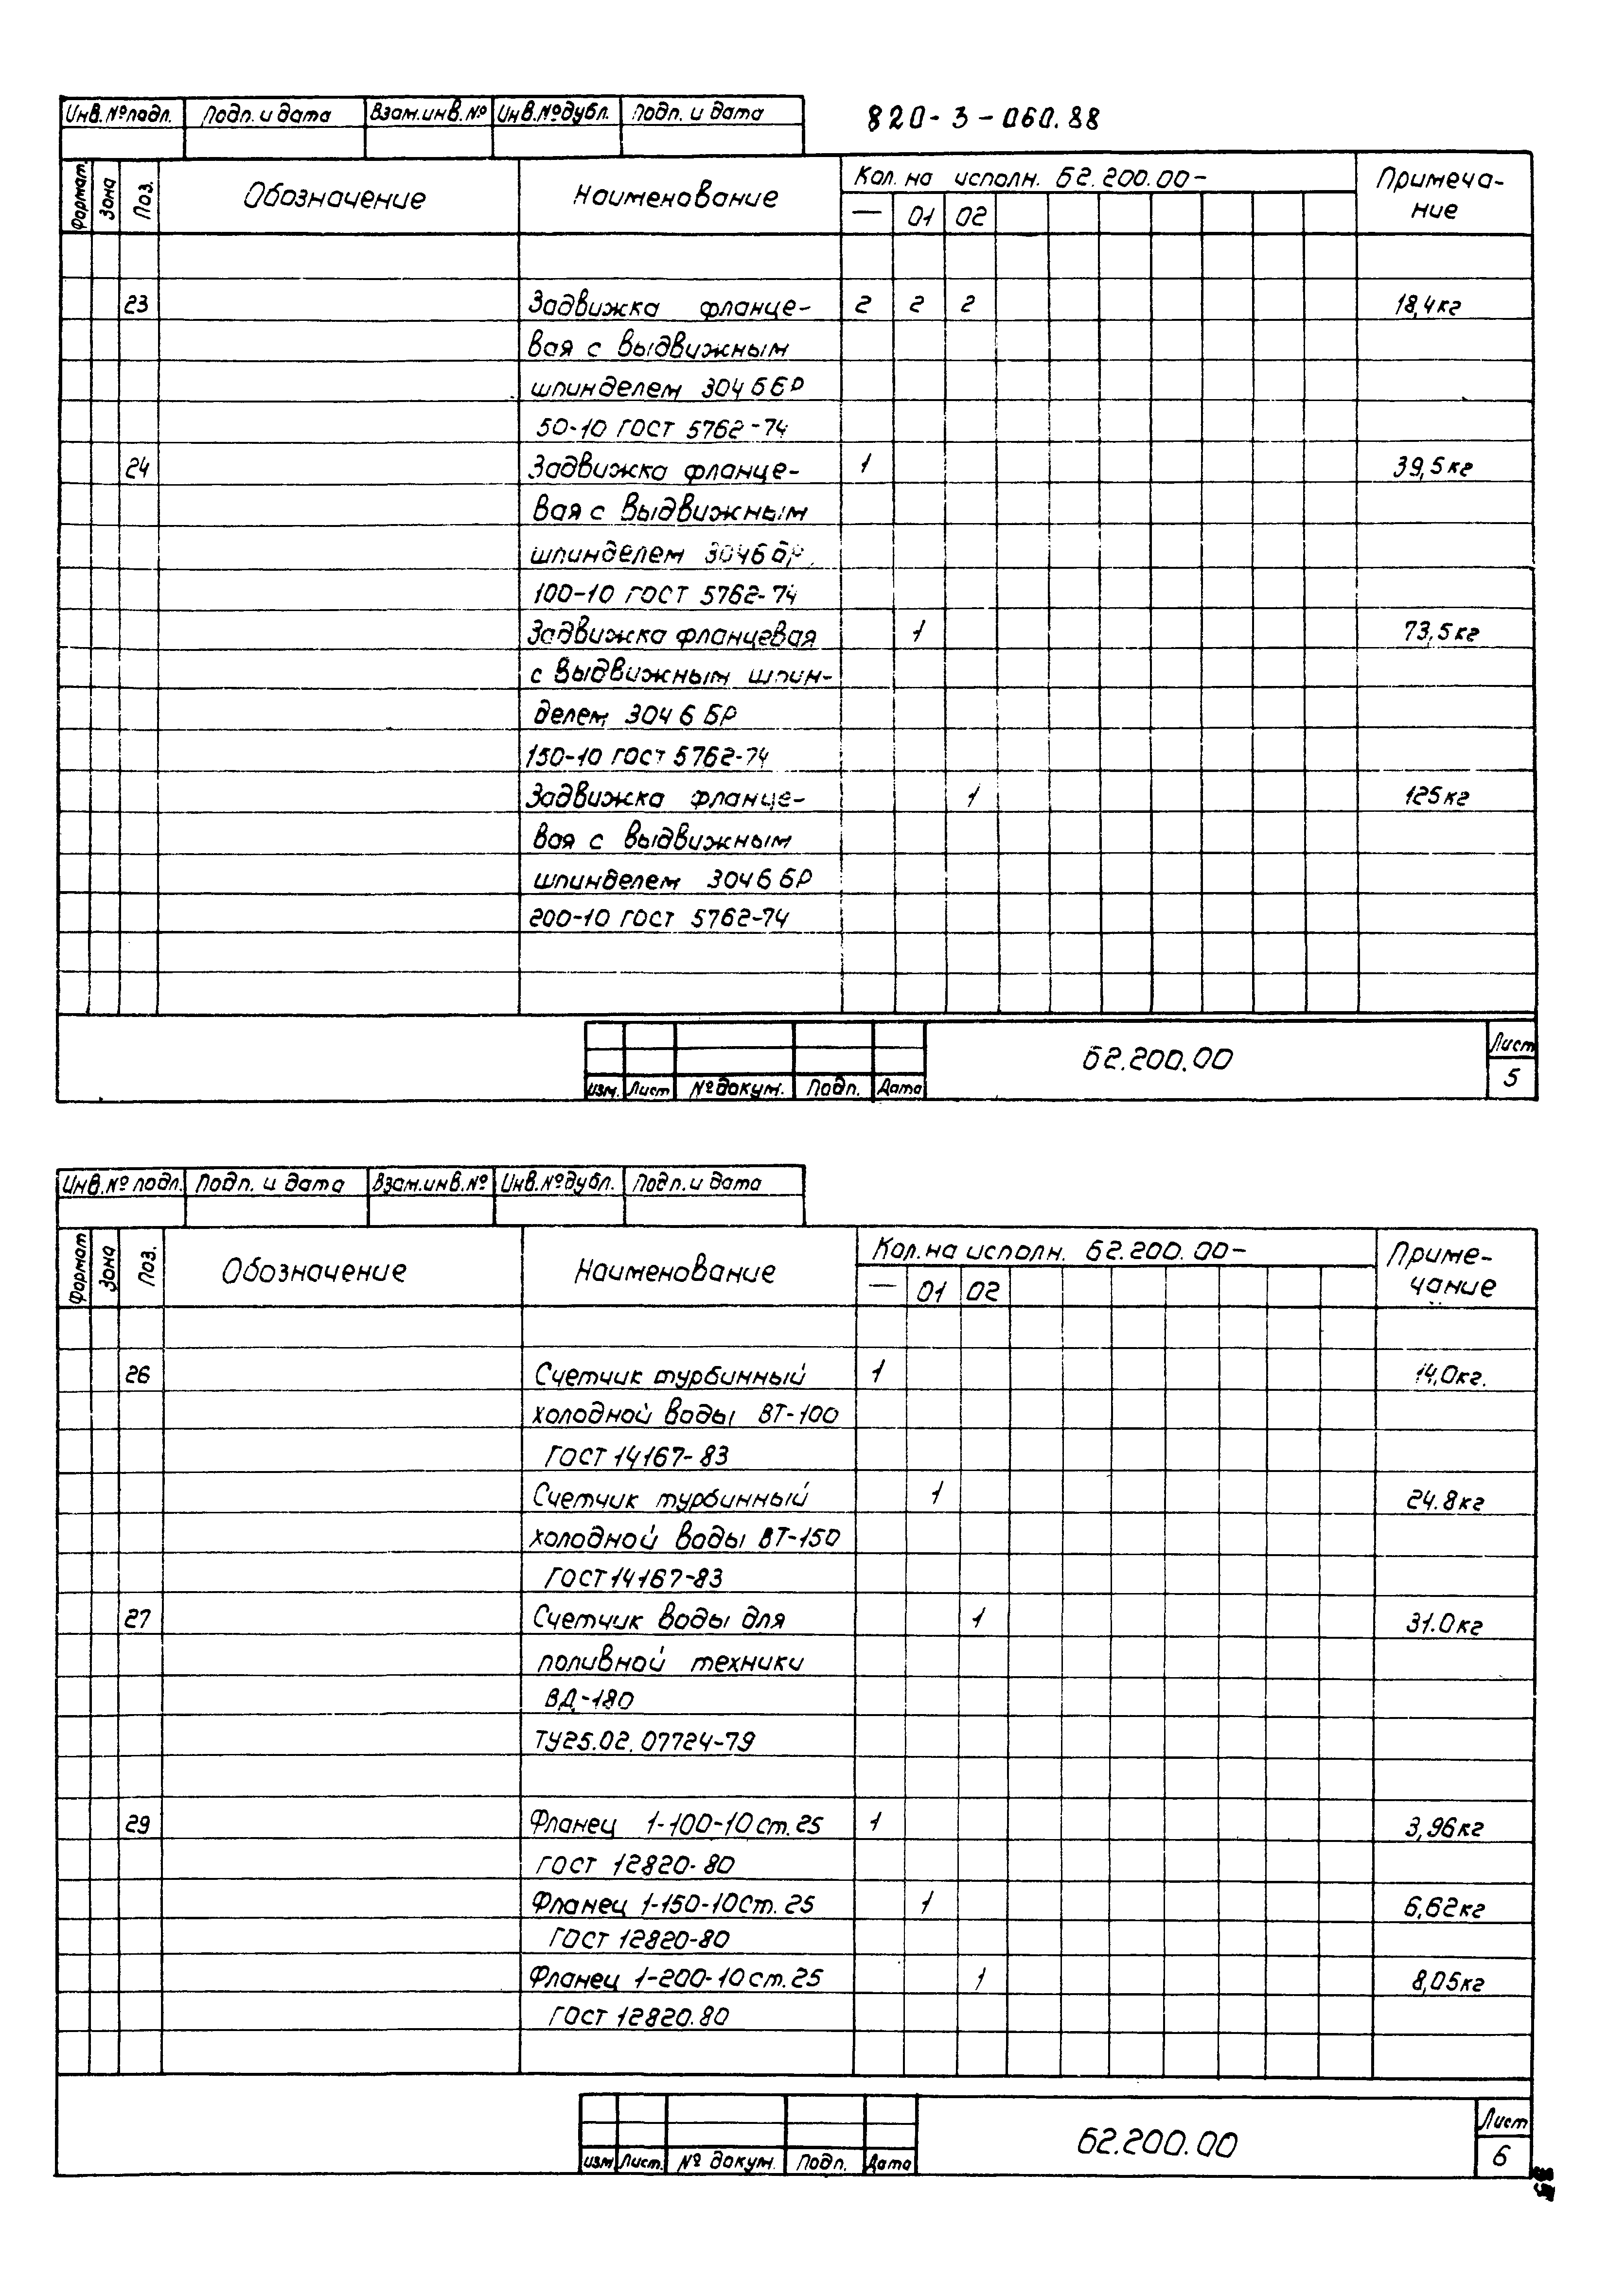 820-3-060.88
Инв.№подл. Подп. и дата Взам.инв.№ Инв.№дубл. Подп. и дата
Формат Зона Поз. Обозначение Наименование Кол. на исполн. Б2.200.00- Примеча-
ние
— 01 02
23 Задвижка фланце- 2 2 2 18,4кг
вая с выдвижным
шпинделем 30Ч6БР
50-10 ГОСТ 5762-74
24 Задвижка фланце- 1 39,5кг
вая с выдвижным
шпинделем 30Ч6БР
100-10 ГОСТ 5762-74
Задвижка фланцевая 1 73,5кг
с выдвижным шпин-
делем 30Ч6БР
150-10 ГОСТ 5762-74
Задвижка фланце- 1 125кг
вая с выдвижным
шпинделем 30Ч6БР
200-10 ГОСТ 5762-74
Изм. Лист №докум. Подп. Дата
Б2.200.00
Лист
5
Инв.№ подл. Подп. и дата Взам.инв.№ Инв.№дубл. Подп. и дата
Формат Зона Поз. Обозначение Наименование Кол. на исполн. Б2.200.00- Приме-
чание
— 01 02
26 Счетчик турбинный 1 14,0кг.
холодной воды ВТ-100
ГОСТ 14167-83
Счетчик турбинный 1 24.8кг
холодной воды ВТ-150
ГОСТ 14167-83
27 Счетчик воды для 1 31.0кг
поливной техники
ВД-180
ТУ25.02.07724-79
29 Фланец 1-100-10 ст.25 1 3,96кг
ГОСТ 12820-80
Фланец 1-150-10 Ст.25 1 6,62кг
ГОСТ 12820-80
Фланец 1-200-10 ст.25 1 8,05кг
ГОСТ 12820.80
Изм Лист. № докум. Подп. Дата
Б2.200.00
Лист
6